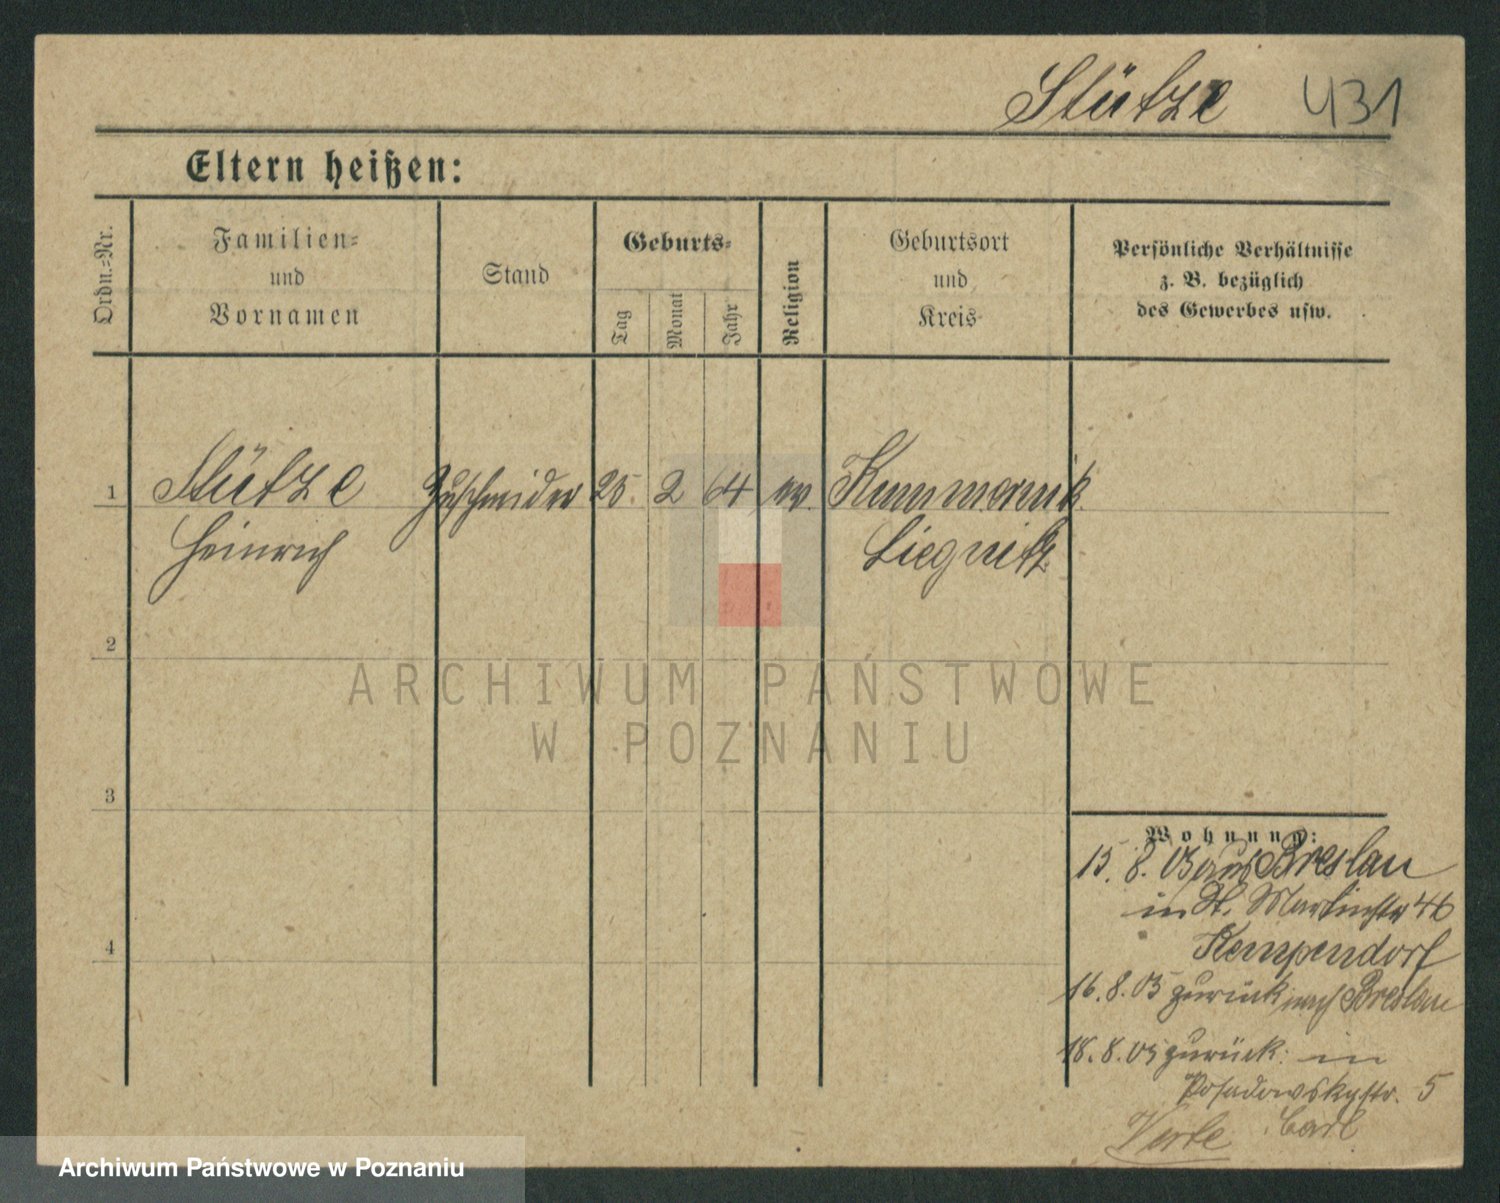 Stütze 431
Eltern heißen:
Ordn.-Nr.
Familien-
und
Vornamen
Stand
Geburts-
Tag
Monat
Jahr
Religion
Geburtsort
und
Kreis
Persönliche Verhältnisse
z. B. bezüglich
des Gewerbes usw.
1 Stütze Zuschneider 25. 2 64 ev. Kummernik
Heinrich Liegnitz
2
3
4
Wohnung:
15. 8. 05 aus Breslau
in St. Martinstr 46
Kempendorf
16. 8. 05 zurück nach Breslau
18. 8. 05 zurück: in
Posadowskystr. 5
Carl
ARCHIWUM PAŃSTWOWE
W POZNANIU
Archiwum Państwowe w Poznaniu